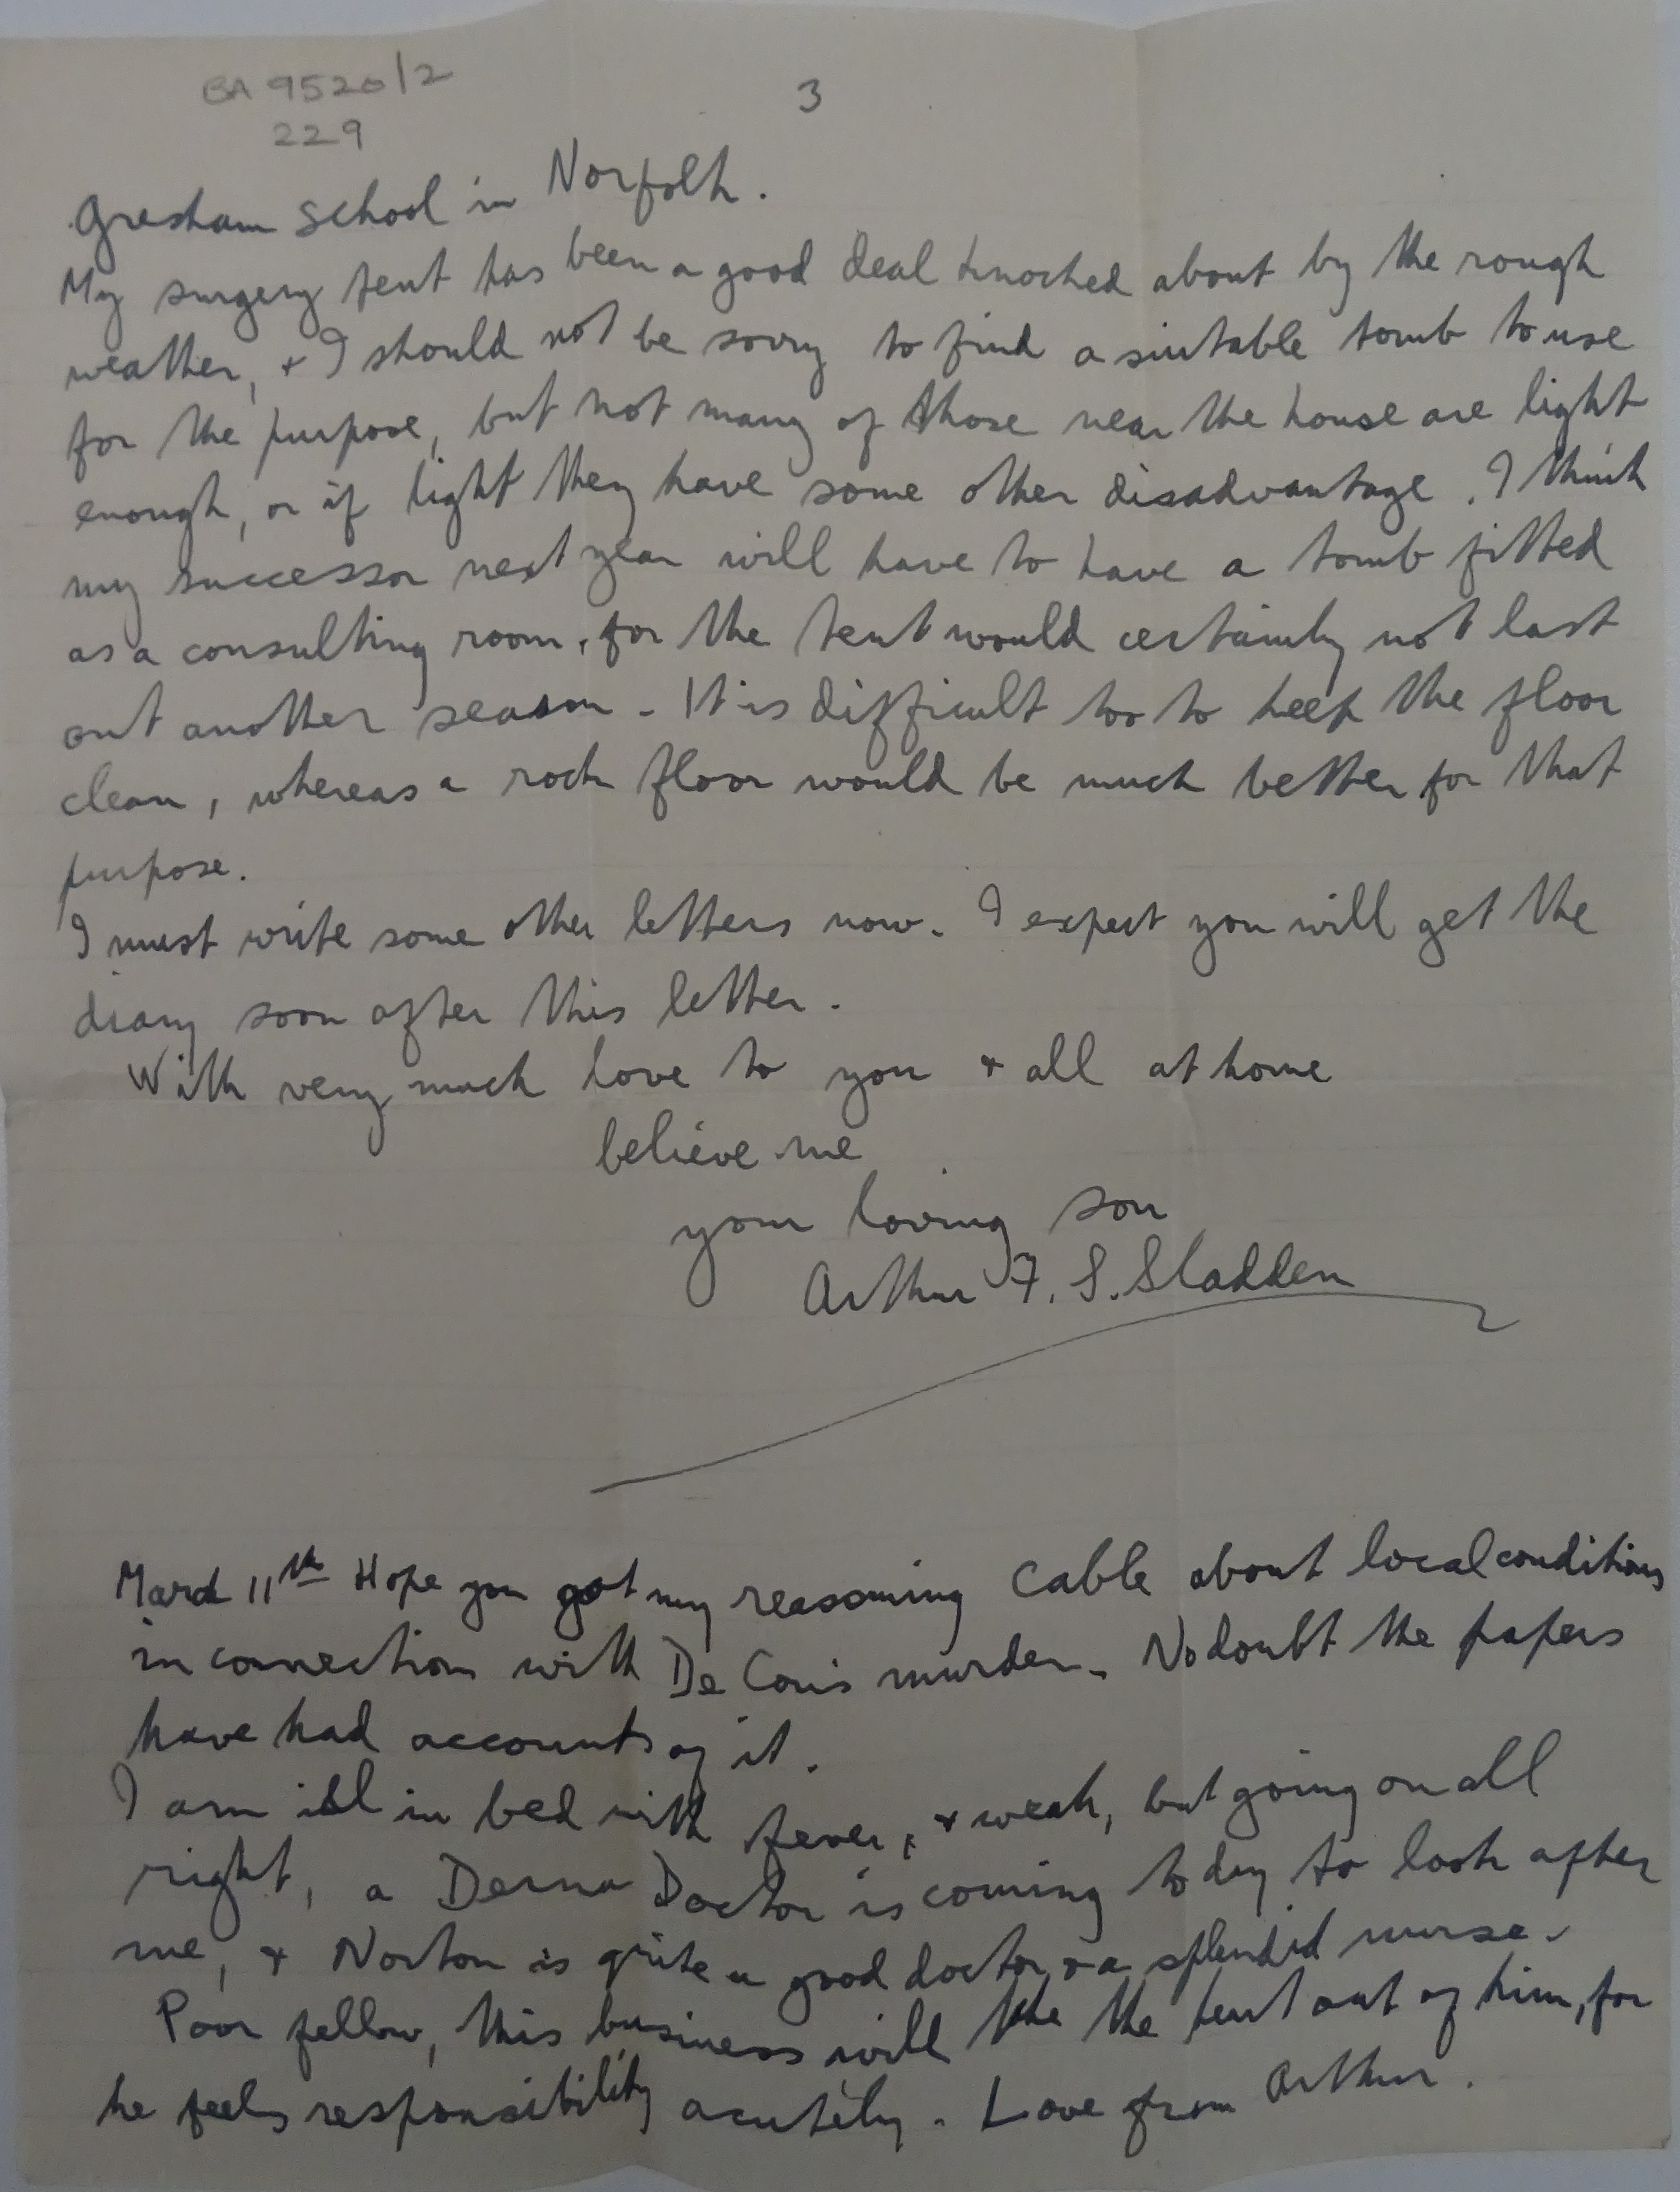 BA 9520/2
229
3
Gresham School in Norfolk.
My surgery tent has been a good deal knocked about by the rough
weather, + I should not be sorry to find a suitable tomb to use
for the purpose, but not many of those near the house are light
enough, or if light they have some other disadvantage. I think
my successor next year will have to have a tomb fitted
as a consulting room, for the tent would certainly not last
out another season. It is difficult too to keep the floor
clean, whereas a rock floor would be much better for that
purpose.
I must write some other letters now. I expect you will get the
diary soon after this letter.
With very much love to you + all at home
believe me
your loving son
Arthur F. S. Sladden
March 11th Hope you got my reassuring cable about local conditions
in connection with De Cou's murder. No doubt the papers
have had accounts of it.
I am ill in bed with fever, + weak, but going on all
right, a Derna Doctor is coming today to look after
me, + Norton is quite a good doctor + a splendid nurse.
Poor fellow, this business will the out of him, for
he feels responsibility acutely. Love from Arthur.